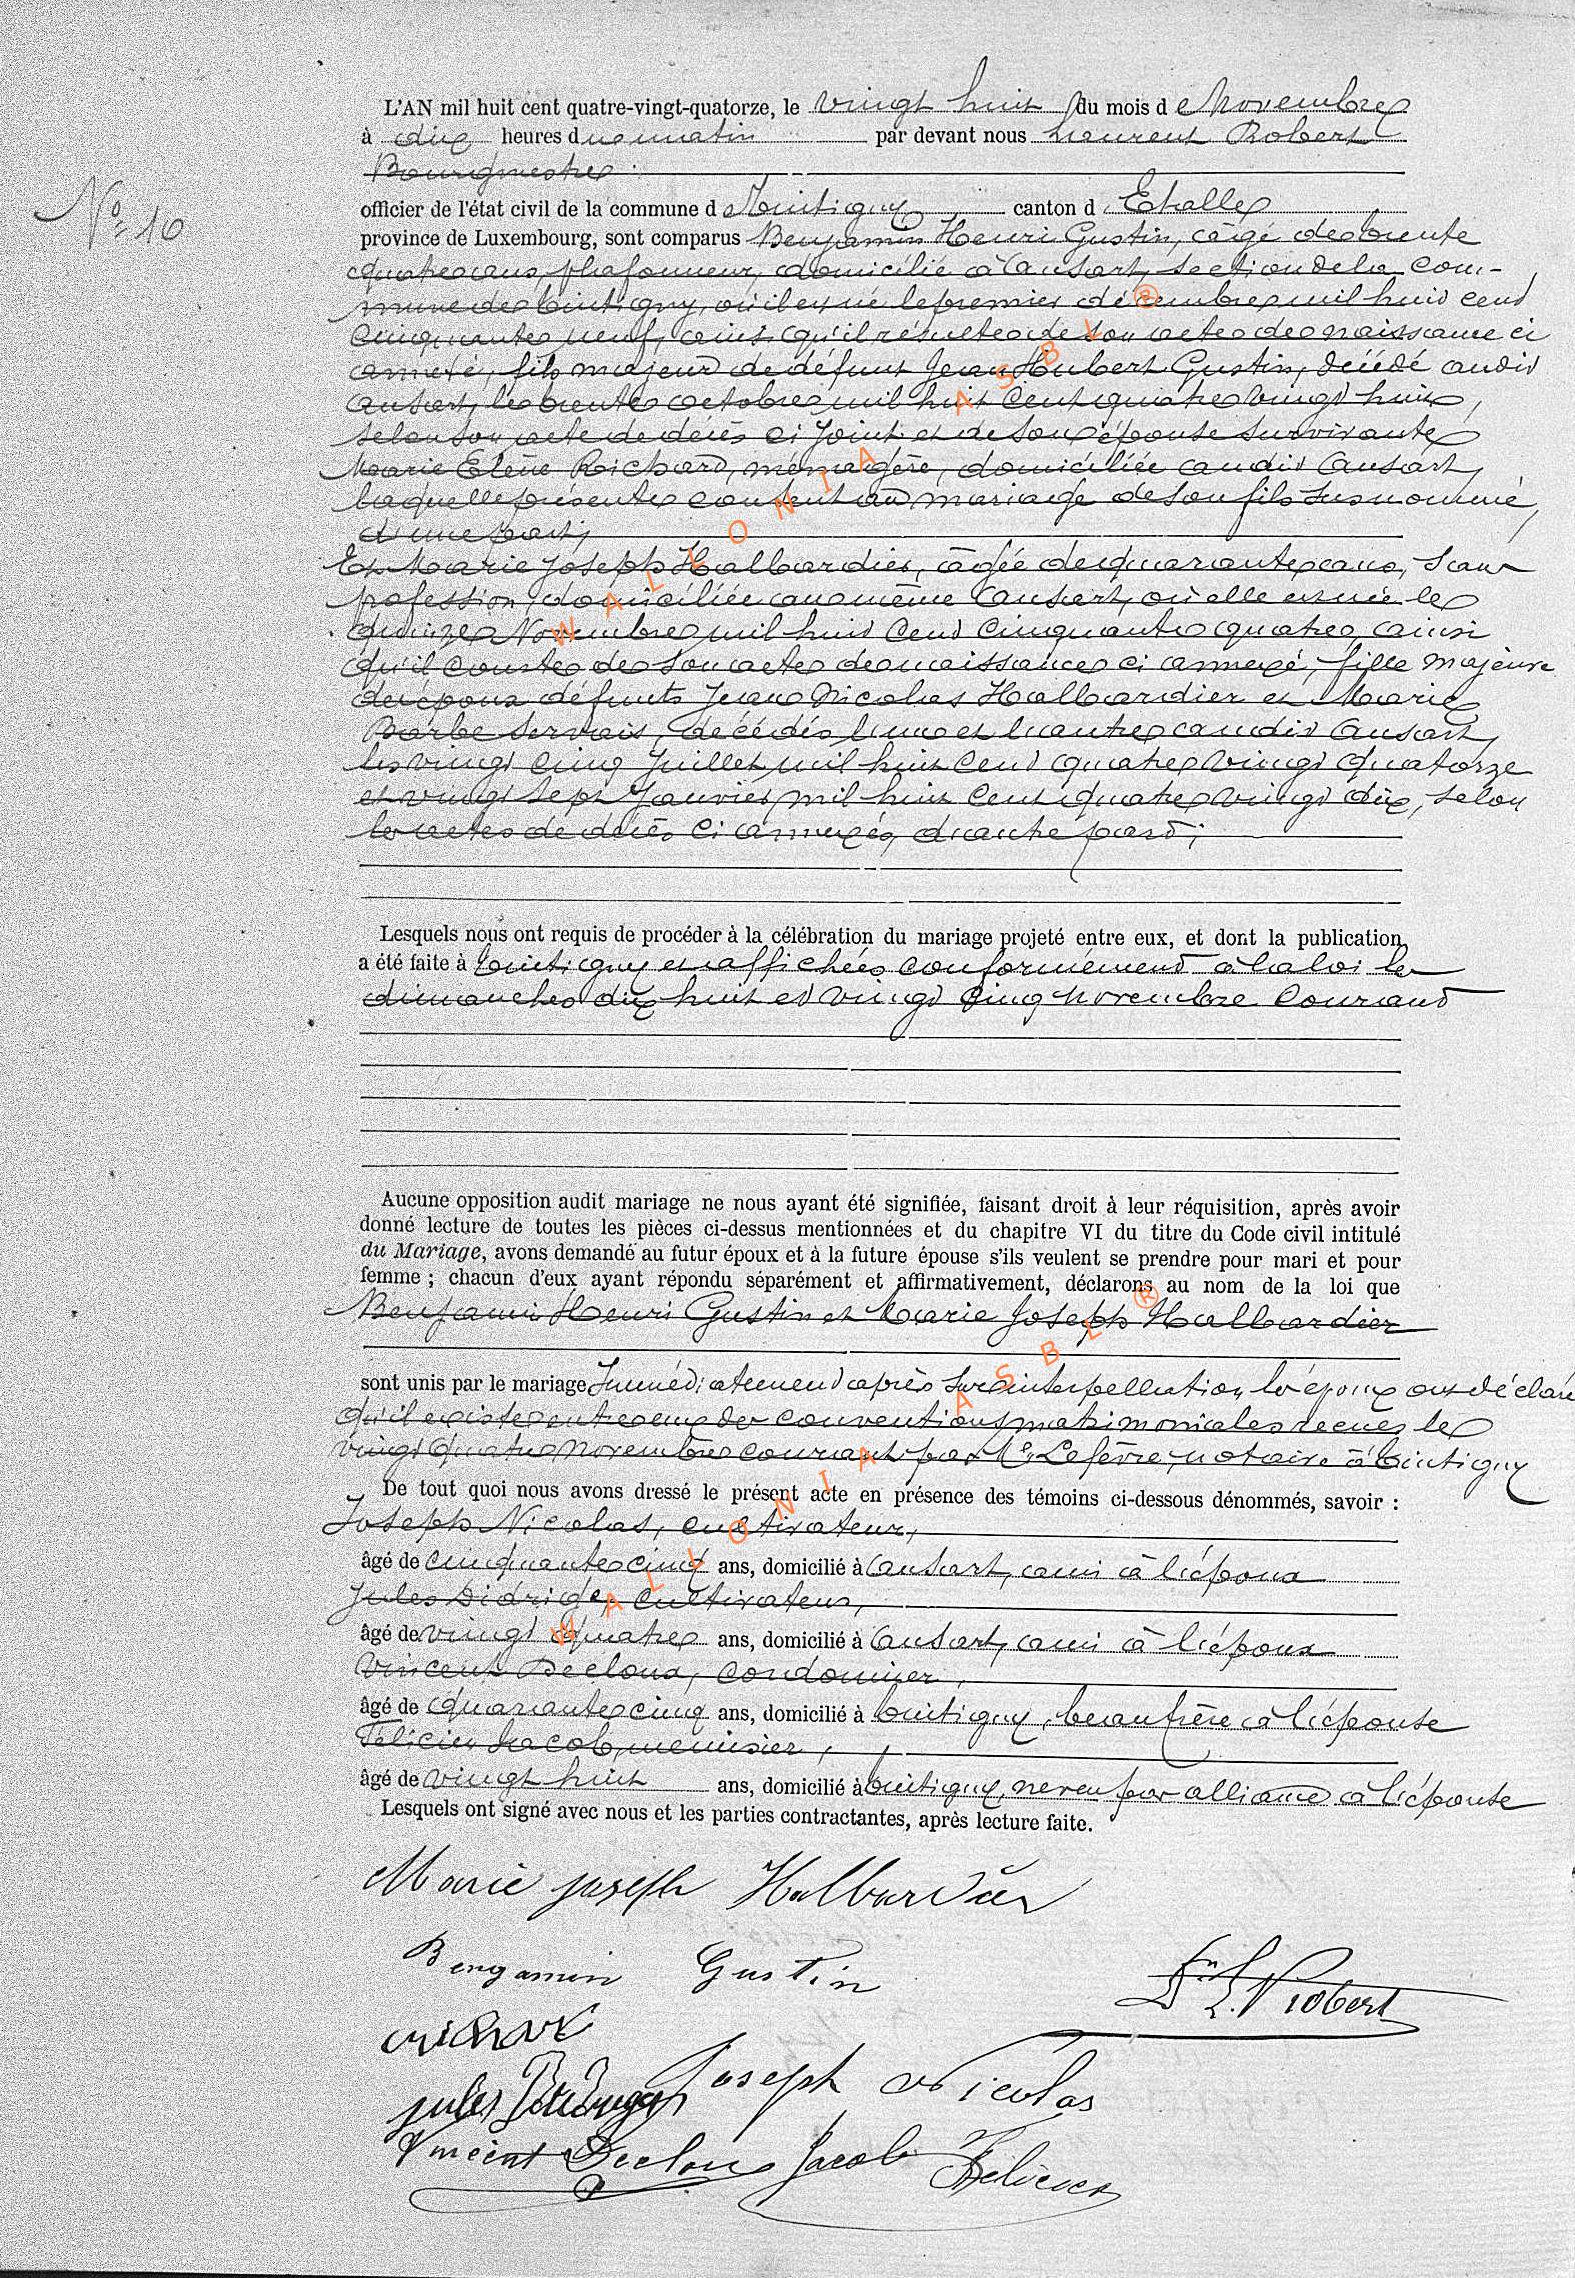 L'AN mil huit cent quatre-vingt-quatorze, le vingt huit du mois de Novembre
à dix heures du matin par devant nous Laurent Robert
Bourgmestre
N° 10
officier de l'état civil de la commune de Tintigny canton d Etalle
province de Luxembourg, sont comparus Benjamin Henri Gustin, âgé de trente
quatre ans, plafonneur, domicilié à Ansart, section de la com-
mune de Tintigny, où il est né le premier décembre mil huit cent
cinquante neuf, ainsi qu'il résulte de son acte de naissance ci
annexé, fils majeur de défunt Jean Hubert Gustin, décédé audit
Ansart, le trente octobre mil huit cent quatre vingt huit,
selon son acte de décès ci joint et de son épouse survivante
Marie Elène Richard, ménagère, domiciliée audit Ansart,
laquelle présente consent au mariage de son fils susnommé,
d'une part;
Et Marie Joseph Halbardier, âgée de quarante ans, sans
profession, domiciliée au même Ansart, où elle est née le
quinze Novembre mil huit cent cinquante quatre, ainsi
qu'il conste de son acte de naissance ci annexé, fille majeure
des époux défunts Jean Nicolas Halbardier et Marie
Barbe Servais, décédés l'un et l'autre audit Ansart,
les vingt cinq Juillet mil huit cent quatre vingt quatorze
et vingt sept Janvier mil huit cent quatre vingt dix, selon
les actes de décès ci annexés, d'autre part;
Lesquels nous ont requis de procéder à la célébration du mariage projeté entre eux, et dont la publication
a été faite à Tintigny et affichées conformément à la loi les
dimanches dix huit et vingt cinq novembre courant
Aucune opposition audit mariage ne nous ayant été signifiée, faisant droit à leur réquisition, après avoir
donné lecture de toutes les pièces ci-dessus mentionnées et du chapitre VI du titre du Code civil intitulé
du Mariage, avons demandé au futur époux et à la future épouse s'ils veulent se prendre pour mari et pour
femme ; chacun d'eux ayant répondu séparément et affirmativement, déclarons au nom de la loi que
Benjamin Henri Gustin et Marie Joseph Halbardier
sont unis par le mariage Immédiatement après sur interpellation les époux ont déclaré
qu'il existe entre eux des conventions matrimoniales recues le
vingt quatre novembre courant par Me Lefèvre, notaire à Tintigny
De tout quoi nous avons dressé le présent acte en présence des témoins ci-dessous dénommés, savoir :
Joseph Nicolas, cultivateur,
âgé de cinquante cinq ans, domicilié à Ansart, ami à l'époux
Jules Didrige, cultivateur,
âgé de vingt quatre ans, domicilié à Ansart, ami à l'époux
Vincent Decloux, cordonnier,
âgé de quarante cinq ans, domicilié à Tintigny, beau frère à l'épouse
Félicien Jacob, menuisier,
âgé de vingt huit ans, domicilié à Tintigny, neveu par alliance à l'épouse
Lesquels ont signé avec nous et les parties contractantes, après lecture faite.
Marie joseph Halbardier
Bengamin Gustin
Dr L. Robert
Joseph Nicolas
jules
Vincent Decloux Jacob Felicien
WALLONIA ASBL ®
WALLONIA ASBL ®